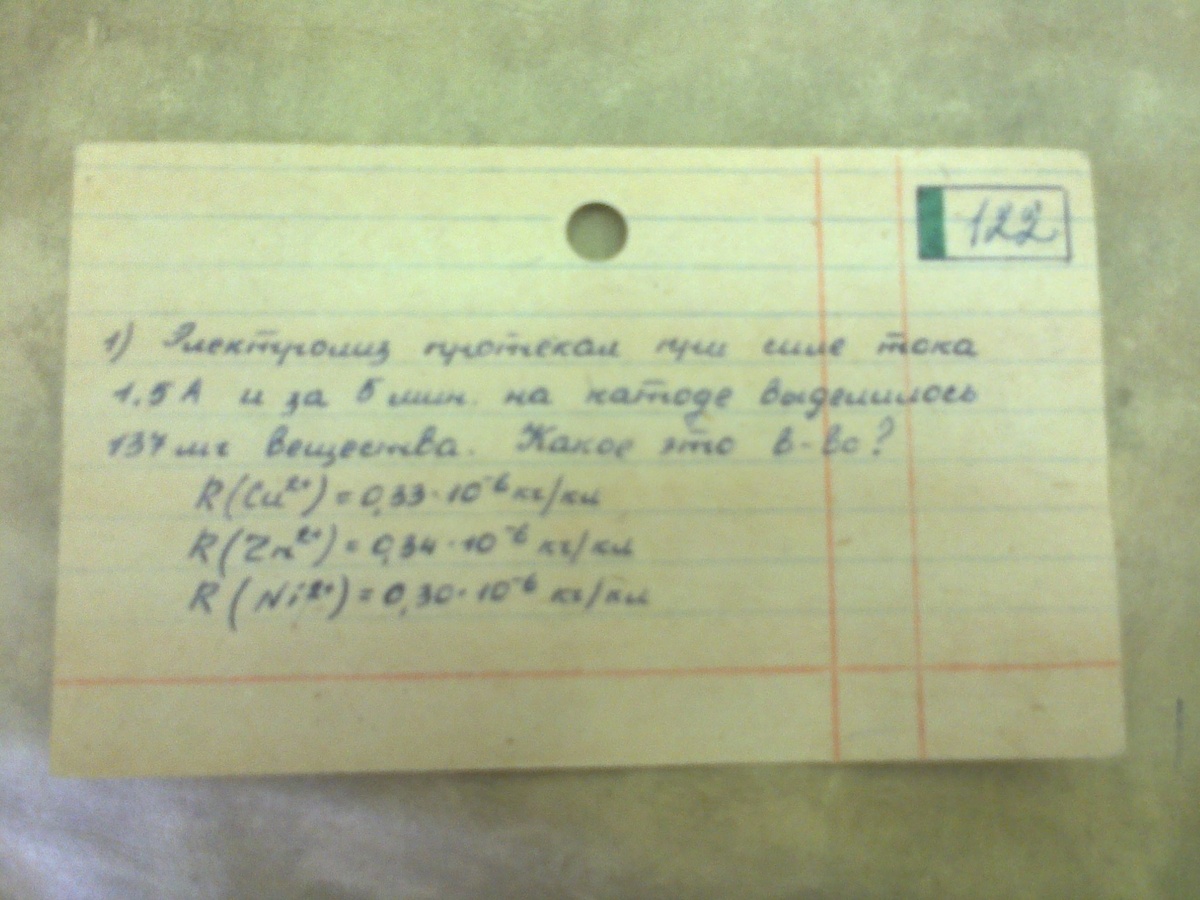 122
1) Электролиз протекал при силе тока
1.5 А и за 5 мин. на катоде выделилось
137 мг вещества. Какое это в-во?
R(Cu²⁺) = 0,33·10⁻⁶ кг/кл
R(Zn²⁺) = 0,34·10⁻⁶ кг/кл
R(Ni²⁺) = 0,30·10⁻⁶ кг/кл